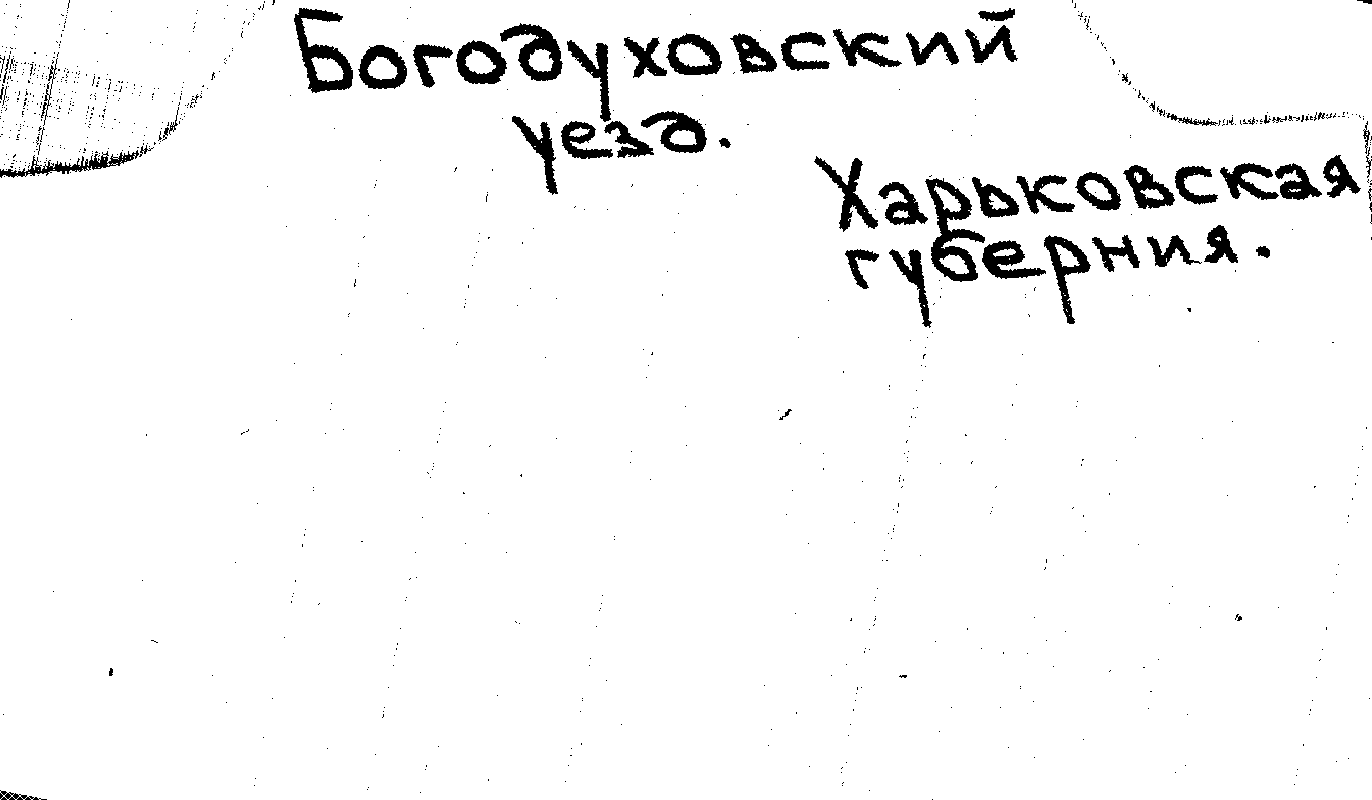 Богодуховский
уезд.
Харьковская
губерния.